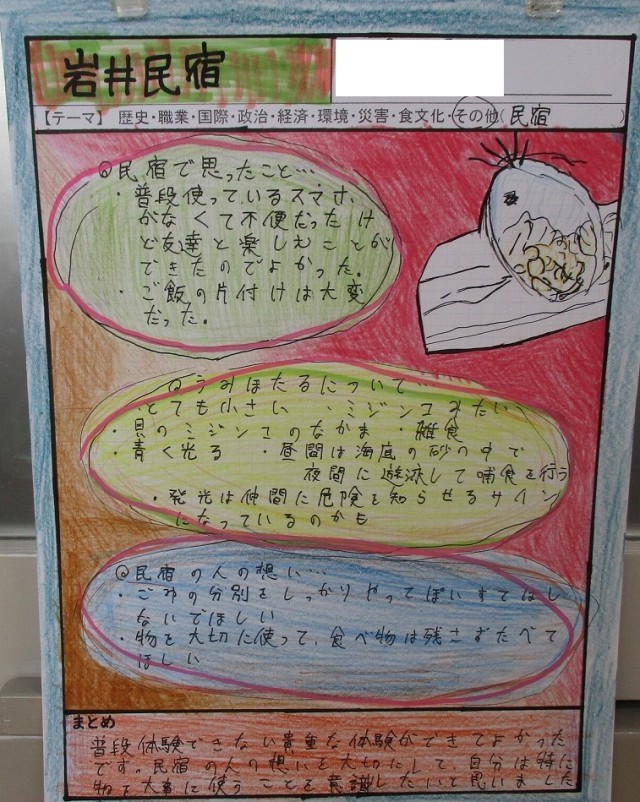 岩井民宿
【テーマ】 歴史・職業・国際・政治・経済・環境・災害・食文化・その他(民宿 )
◎民宿で思ったこと…
・普段使っているスマホ、
がなくて不便だったけ
ど友達と楽しむことが
できたのでよかった。
・ご飯の片付けは大変
だった。
◎うみほたるについて…
・とても小さい ・ミジンコみたい
・貝のミジンコのなかま ・雑食
・青く光る ・昼間は海底の砂の中で
夜間に遊泳して哺食を行う
・発光は仲間に危険を知らせるサイン
になっているのかも
◎民宿の人の想い…
・ごみの分別をしっかりやってぽいすてはし
ないでほしい
・物を大切に使って、食べ物は残さずたべて
ほしい
まとめ
普段体験できない貴重な体験ができてよかった
です。民宿の人の想いを大切にして、自分は特に
物を大事に使うことを意識したいと思いました